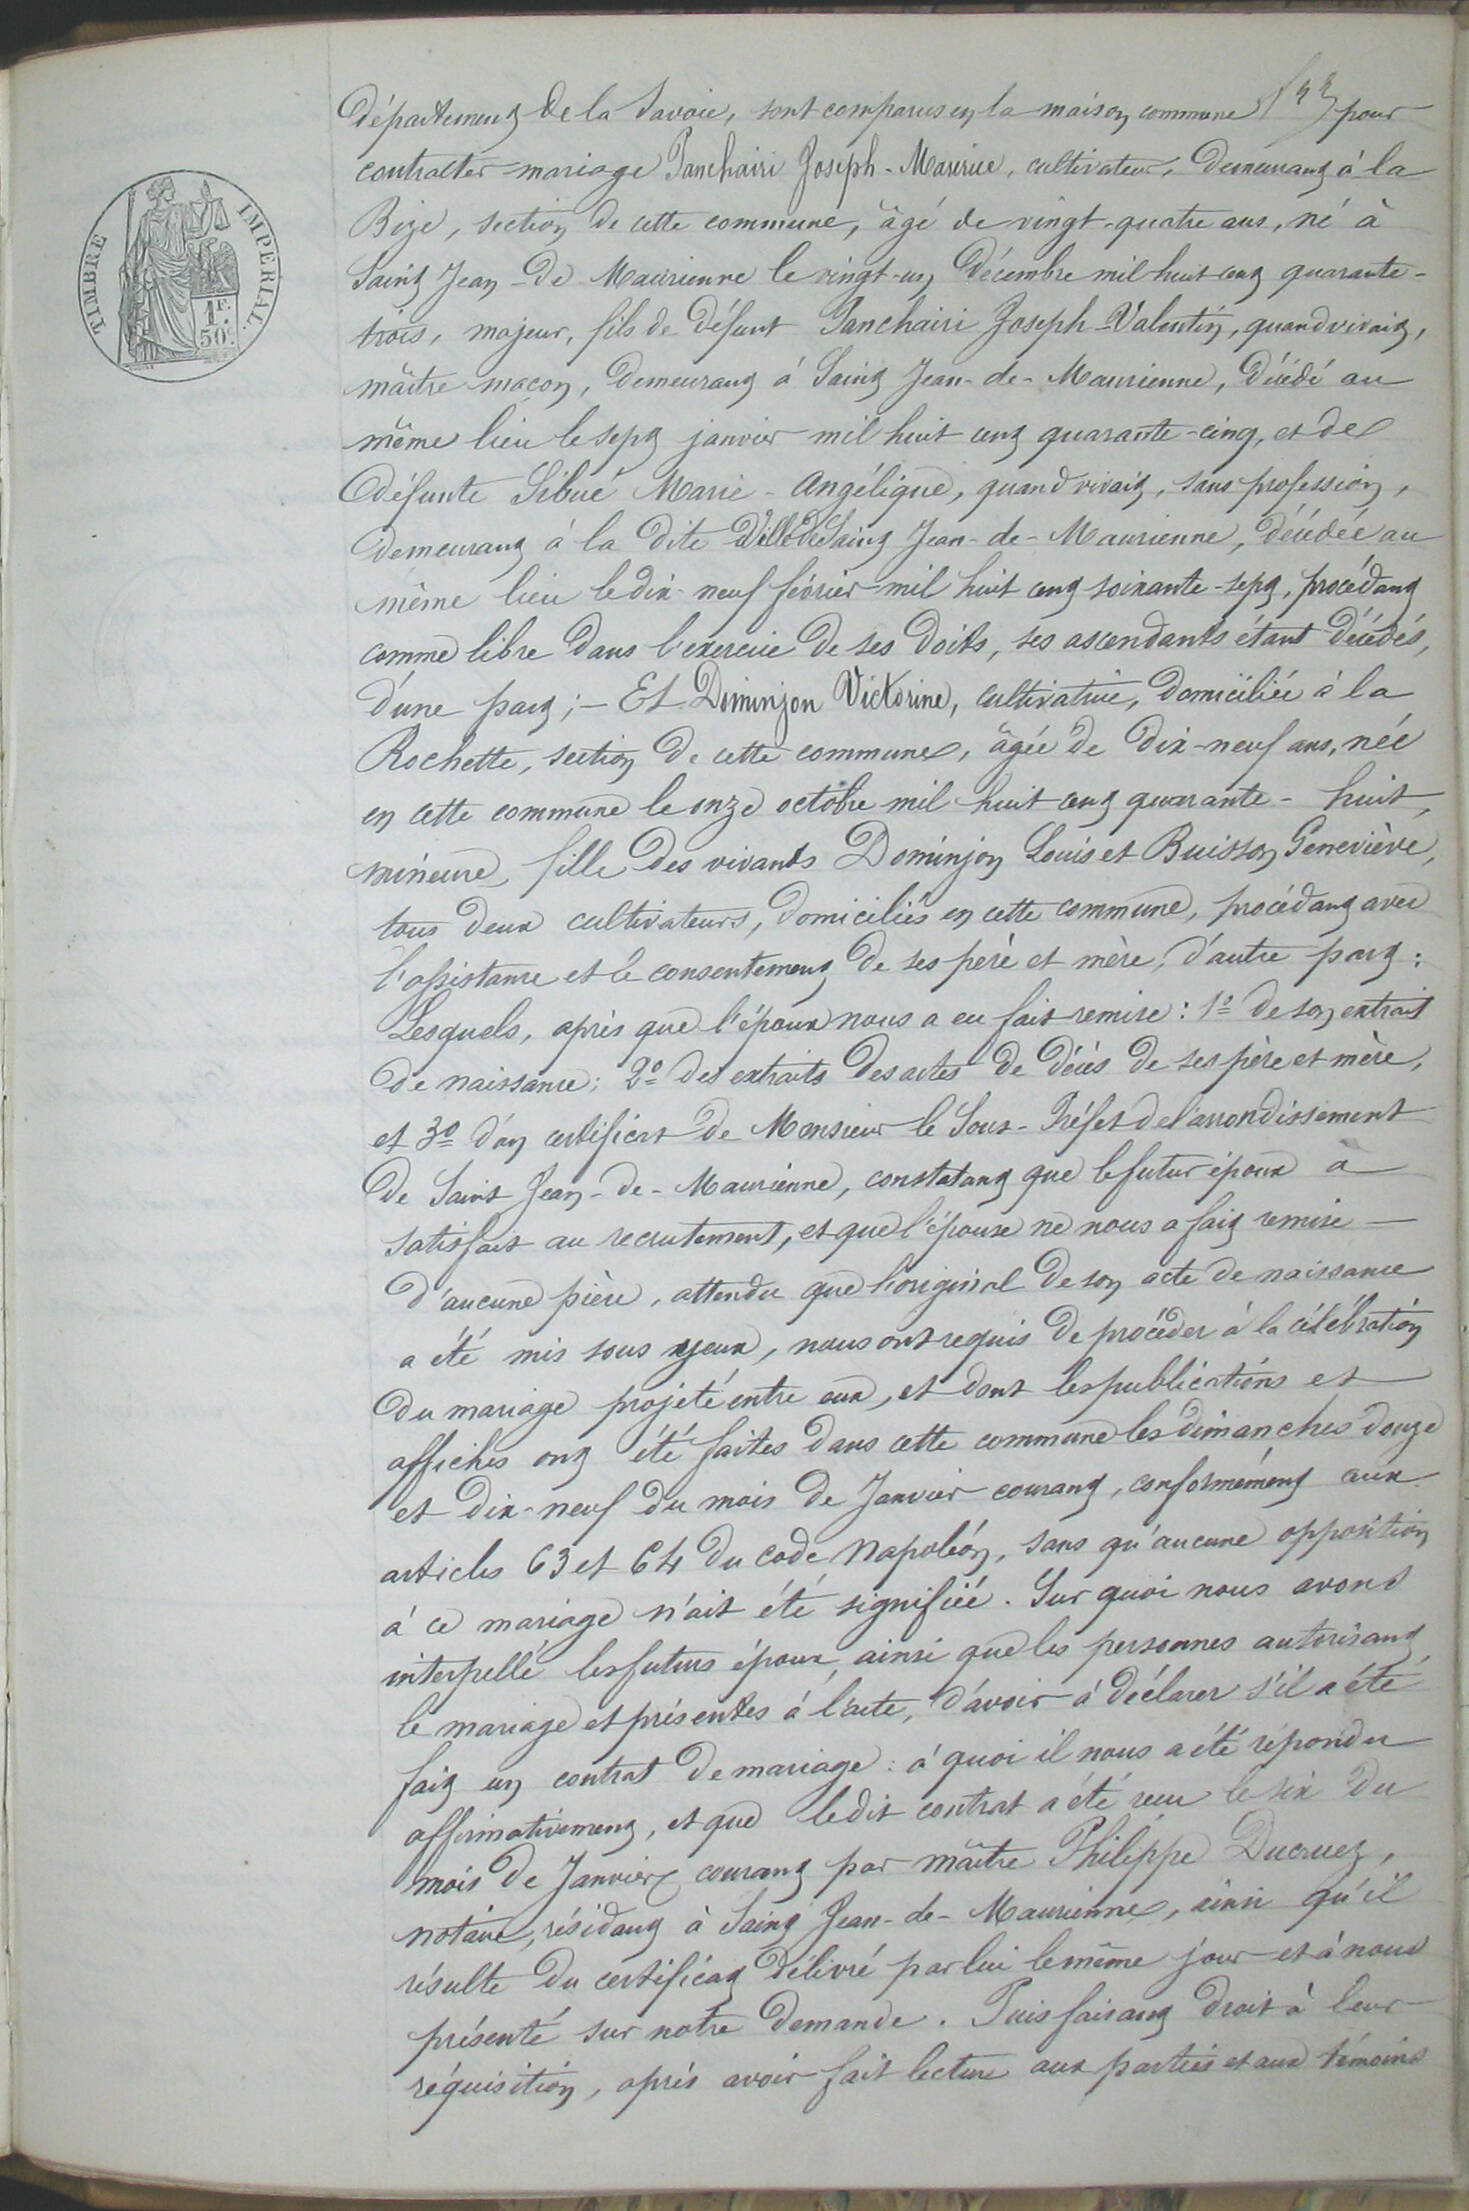 département de la Savoie, sont comparus en la maison commune pour
contracter mariage Panchairi Joseph-Maurice, cultivateur, demeurant à la
Bize, section de cette commune, âgé de vingt-quatre ans, né à
Saint Jean-de Maurienne le vingt-un décembre mil huit cent quarante-
trois, majeur, fils de défunt Panchairi Joseph-Valentin, quand vivait,
maître maçon, demeurant à Saint Jean-de-Maurienne, décédé au
même lieu le sept janvier mil huit cent quarante-cinq, et de
défunte Sibué Marie-Angélique, quand vivait, sans profession,
demeurant à la dite Ville de Saint Jean-de-Maurienne, décédée au
même lieu le dix-neuf février mil huit cent soixante-sept, procédant
comme libre dans l'exercice de ses doits, ses ascendants étant décédés,
d'une part; — Et Dominjon Victorine, cultivatrice, domiciliée à la
Rochette, section de cette commune, âgée de dix-neuf ans, née
en cette commune le onze octobre mil huit cent quarante-huit,
mineure, fille des vivants Dominjon Louis et Buisson Geneviève,
tous deux cultivateurs, domiciliés en cette commune, procédant avec
l'assistance et le consentement de ses père et mère, d'autre part:
Lesquels, après que l'époux nous a eu fait remise: 1º de son extrait
de naissance; 2º des extraits des actes de décès de ses père et mère,
et 3º d'un certificat de Monsieur le Sous-Préfet de l'arrondissement
de Saint Jean-de-Maurienne, constatant que le futur époux a
satisfait au recrutement, et que l'épouse ne nous a fait remise —
d'aucune pièce, attendu que l'original de son acte de naissance
a été mis sous yeux, nous ont requis de procéder à la célébration
du mariage projeté entre eux, et dont les publications et
affiches ont été faites dans cette commune les dimanches douze
et dix-neuf du mois de Janvier courant, conformément aux
articles 63 et 64 du code Napoléon, sans qu'aucune opposition
à ce mariage n'ait été signifiée. Sur quoi nous avons
interpellé les futurs époux, ainsi que les personnes autorisant
le mariage et présentes à l'acte, d'avoir à déclarer s'il a été
fait un contrat de mariage: à quoi il nous a été répondu
affirmativement, et que ledit contrat a été reçu le six du
mois de Janvier courant par maître Philippe Ducruez,
notaire, résidant à Saint Jean-de-Maurienne, ainsi qu'il
résulte du certificat délivré par lui le même jour et à nous
présenté sur notre demande. Puis faisant droit à leur
réquisition, après avoir fait lecture aux parties et aux témoins
TIMBRE IMPERIAL.
1F.
50c